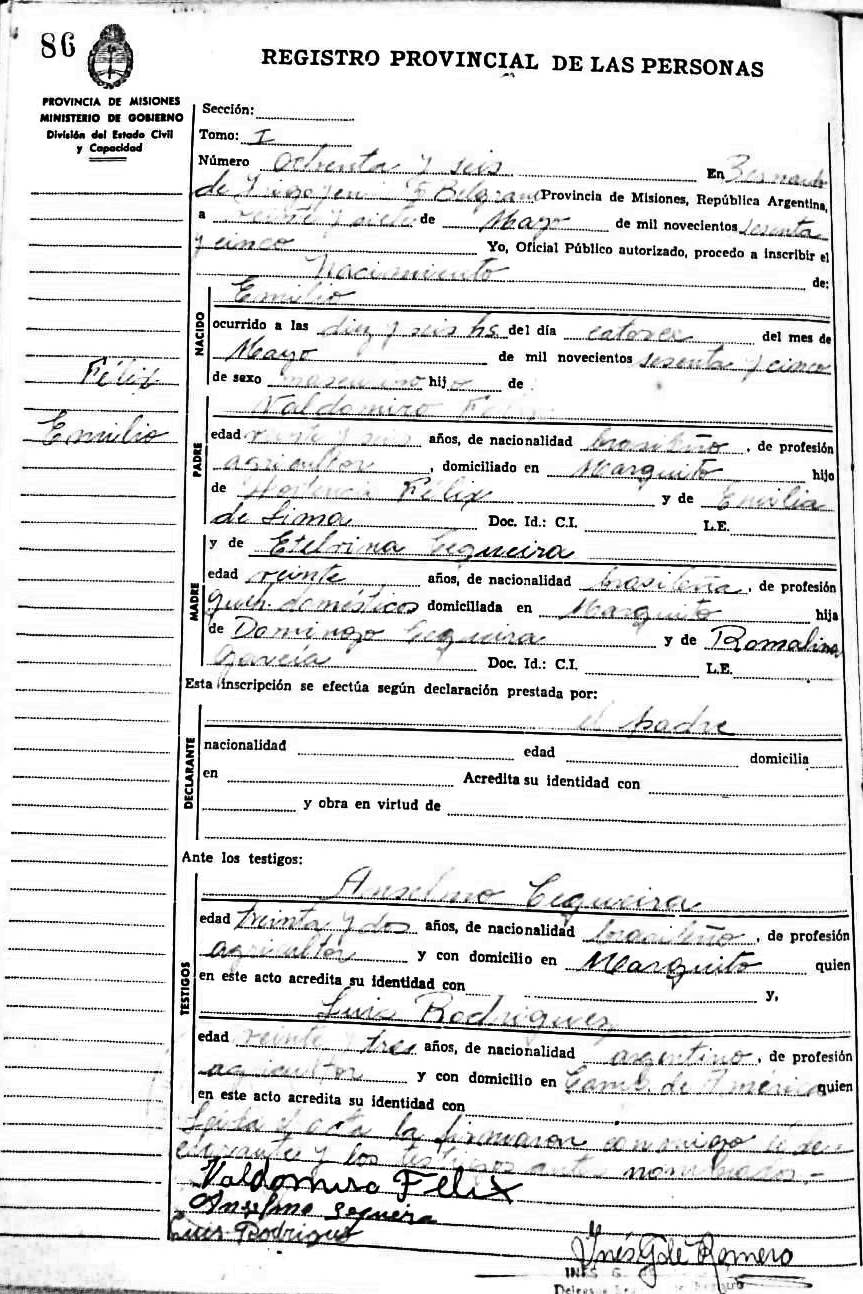 86
REGISTRO PROVINCIAL DE LAS PERSONAS
PROVINCIA DE MISIONES
MINISTERIO DE GOBIERNO
División del Estado Civil
y Capacidad
Sección:
Tomo: I
Número ochenta y seis En Bernardo
de Irigoyen Belgrano (Provincia de Misiones, República Argentina,
a veinte y siete de Mayo de mil novecientos sesenta
y cinco Yo, Oficial Público autorizado, procedo a inscribir el
Nacimiento de:
Félix
Emilio
NACIDO
Emilio
ocurrido a las diez y seis hs del día catorce del mes de
Mayo de mil novecientos sesenta y cinco
de sexo masculino hijo de
PADRE
Valdomiro Félix
edad veinte y seis años, de nacionalidad brasileño, de profesión
agricultor, domiciliado en Marquito hijo
de Félix y de Emilia
de Lima Doc. Id.: C.I. L.E.
MADRE
y de Etelvina Cequeira
edad veinte años, de nacionalidad brasileña, de profesión
queh. domésticos domiciliada en Marquito hija
de Domingo Cequeira y de Romalina
García Doc. Id.: C.I. L.E.
Esta inscripción se efectúa según declaración prestada por:
DECLARANTE
el padre
nacionalidad edad domicilia
en Acredita su identidad con
y obra en virtud de
Ante los testigos:
TESTIGOS
Anselmo Cequeira
edad treinta y dos años, de nacionalidad brasileño, de profesión
agricultor y con domicilio en Marquito quien
en este acto acredita su identidad con y,
Luis Rodriguez
edad veinte y tres años, de nacionalidad argentino, de profesión
agricultor y con domicilio en de América quien
en este acto acredita su identidad con
Leída el acta la firmaron conmigo el de
clarante y los testigos ante nombrados.-
Valdomiro Félix
Anselmo sequeira
Luis Rodrigue
Inés G de Romero
INES G.